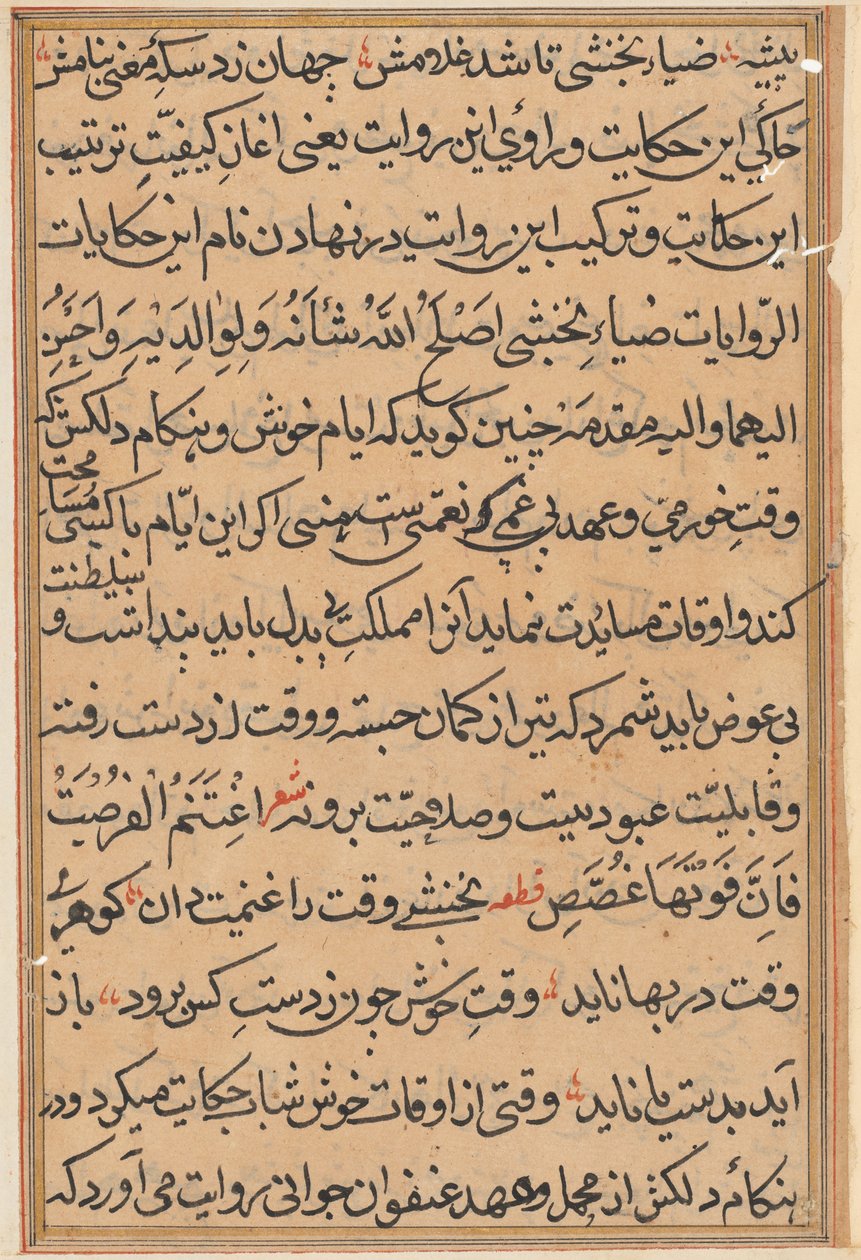 پیشه ؛؛ ضیاء نخشبی تا شد غلامش ؛؛ جهان زد سکهٔ معنی بنامش ؛؛
حاکئ این حکایت و راوئ این روایت یعنی اغازِ کیفیّتِ ترتیب
این حکایت و ترکیب این روایت در نهادن نام این حکایات
الرّوایات ضیاءِ نخشبی اَصْلَحَ اللّٰهُ شَأنَهُ وَلِوٰالِدَیْهِ وَاَحْسَنَ
الیهما والیه مقدمه چنین کوید که ایام خوش و هنکام دلکش که
وقتِ خورمی و عهد بی غمی که نعمتی ست هنی اکر این ایّام با کسی مسامحت
کند و اوقات مسایدت نماید آنرا مملکتِ بی بدل باید پنداشت و سلطنت
بی عوض باید شمرد که تیر از کمان جسته و وقت از دست رفته
و قابلیّت عبود نیست و صلاحیّت برو نه شعر اِغْتَنَمُ الْفُرْصَتُ
فَاِنَّ فَوْتَهَا غُصَّصِ قطعه نخشبی وقت را غنمیت دان ؛؛ کوهری
وقت در بها ناید ؛؛ وقتِ خوش چون زدستِ کس برود ؛؛ باز
آید بدست یا ناید ؛؛ وقتی از اوقات خوش شباب حکایت میکرد و در
هنکام دلکش از مجمل و عهد عنفوان جوانی روایت می آورد که